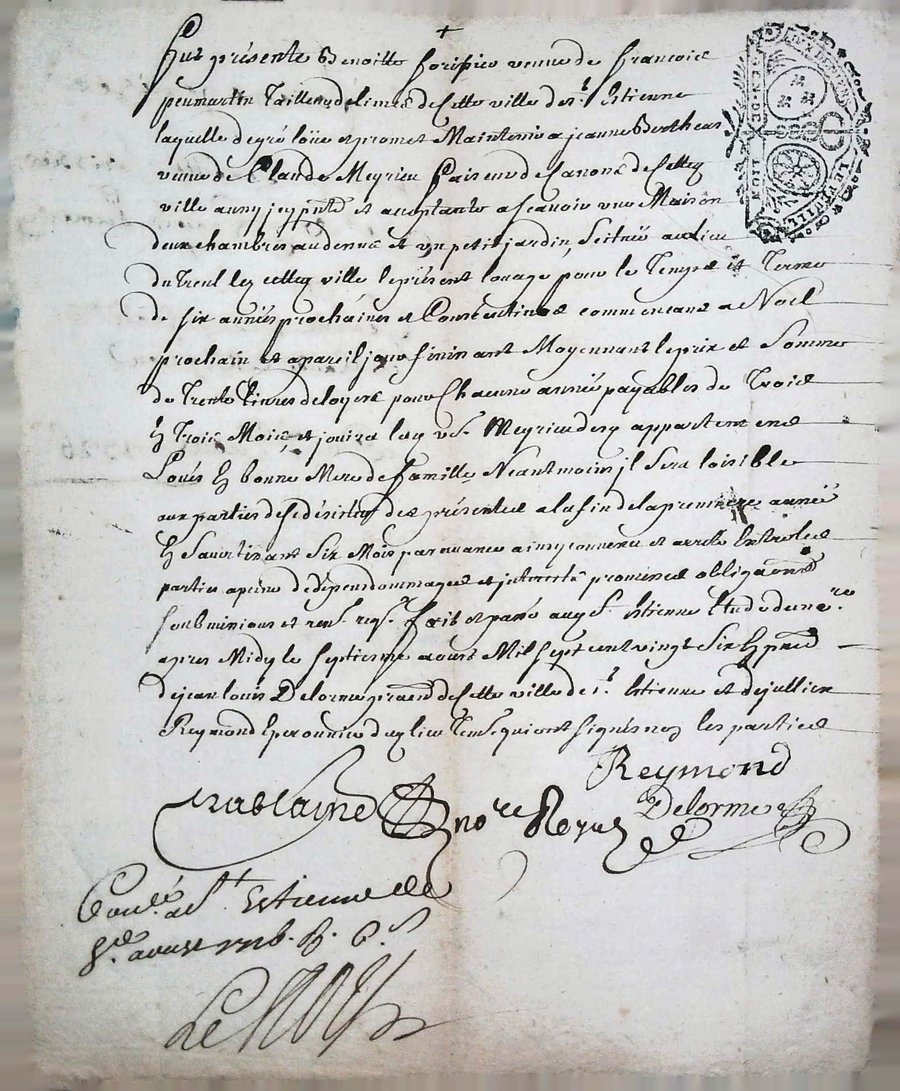 +
Fut présente Benoitte veuve de francois
peumartin Tailleur de limes de cette ville de st Etienne
laquelle de gré loüe et promet Maintenir a jeanne Bertheas
veuve de Claude Meyrieu faiseur de canons de cette
ville aussy icy pnte et acceptante a scavoir une Maison
deux chambres au dessus et un petit jardin, scitué au lieu
du Treul lez cette ville le présent louage pour le Temps et Terme
de six années prochaines et Consecutives commencant a Noel
prochain et a pareil jour finissant Moyennant le prix et Somme
de Trente livres de loyers pour Chacune année payables de Trois
en Trois Mois, et jouira lad ve Meyrieu desd appartements
Loués en bonne Mere de famille, Neantmoins jl sera loisible
aux parties de se désister des présentes a la fin de la premiere année
en S'avertissant Six Mois par avance ainsy convenu et arresté entre les
parties a peine de dépens dommages et jnterests promesses obligaons
soubmissions et ren. req. fait et passé aud st Etienne Etude du nore
apres Midy le septiesme aoust Mil sept cent vingt six en pnce
de jean louis Delorme de cette ville de st Etienne et de jullien
Reymond Eperonnier dud lieu Tem. qui ont signés non les parties
Reymond
Delorme
nore Royal
Controllé a st Estienne le
8e aoust 1726. R.
Le